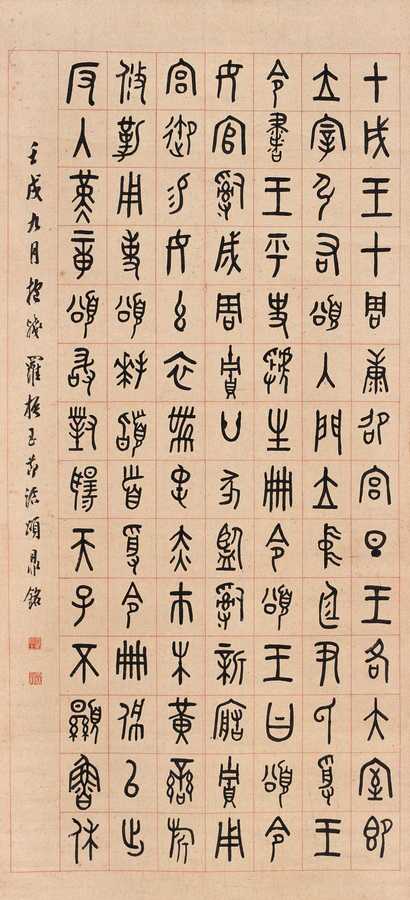 甲戌王才周康卲宮旦王各大室即
立宰弘右頌入門立中廷尹氏受王
令書王乎史虢生冊令頌王曰頌令
女官𤔲成周貯廿家監𤔲新造貯用
宮御易女玄衣黹屯赤巿朱黃鑾旂
攸勒用事頌拜𩒨首受令冊佩以出
反入堇章頌敢對揚天子不顯魯休
壬戌九月抱殘羅振玉節臨頌鼎銘